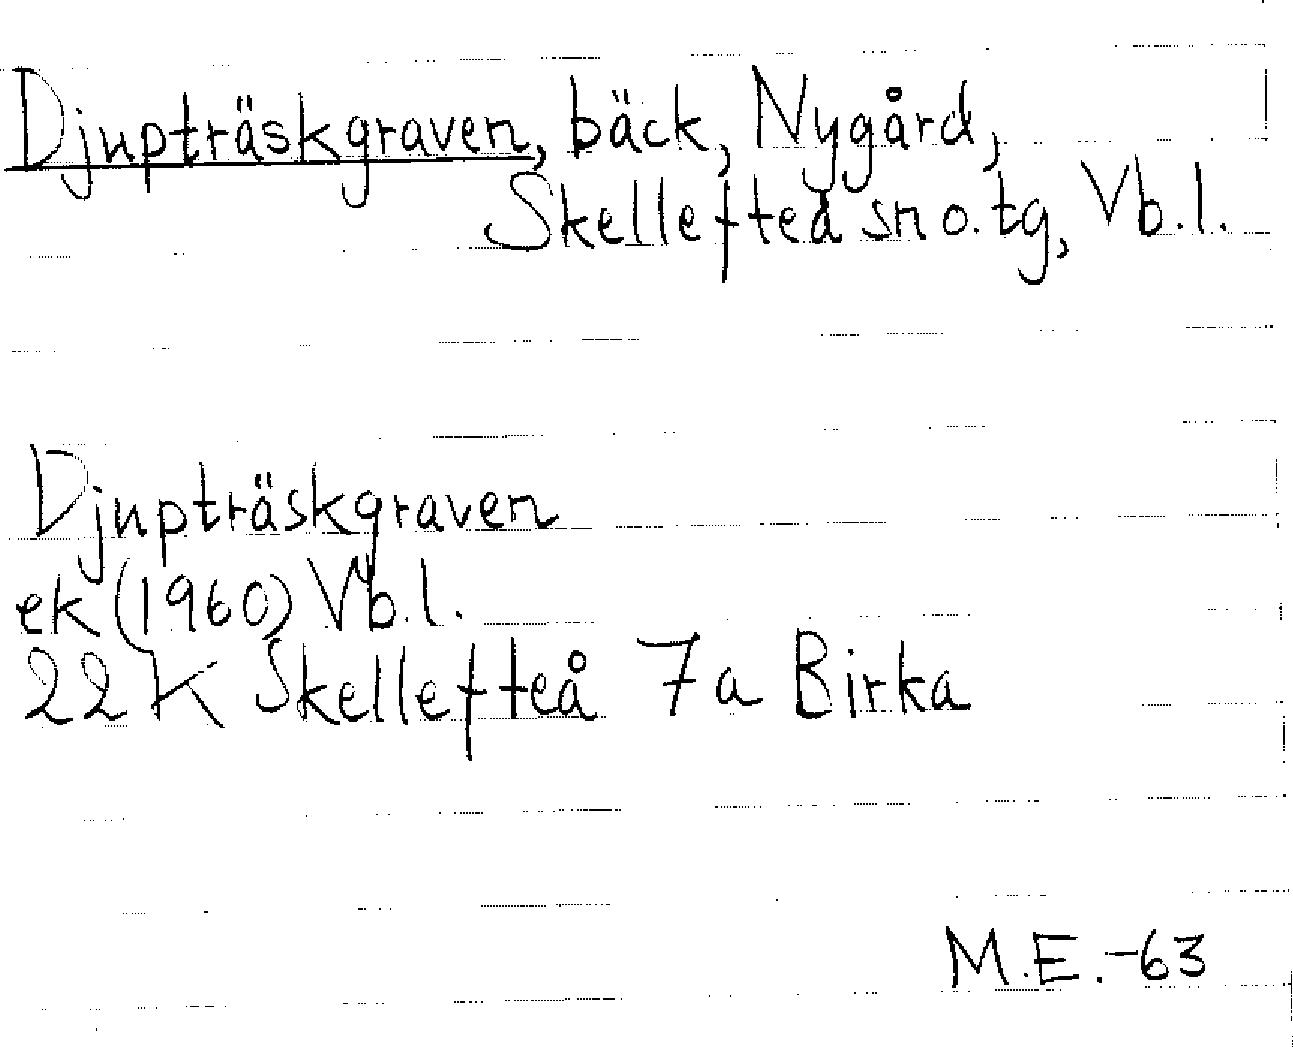 Djupträskgraven, bäck, Nygård,
Skellefteå sn o. tg, Vb.l.
Djupträskgraven
ek (1960) Vb.l.
22 K Skellefteå 7a Birka
M.E.-63